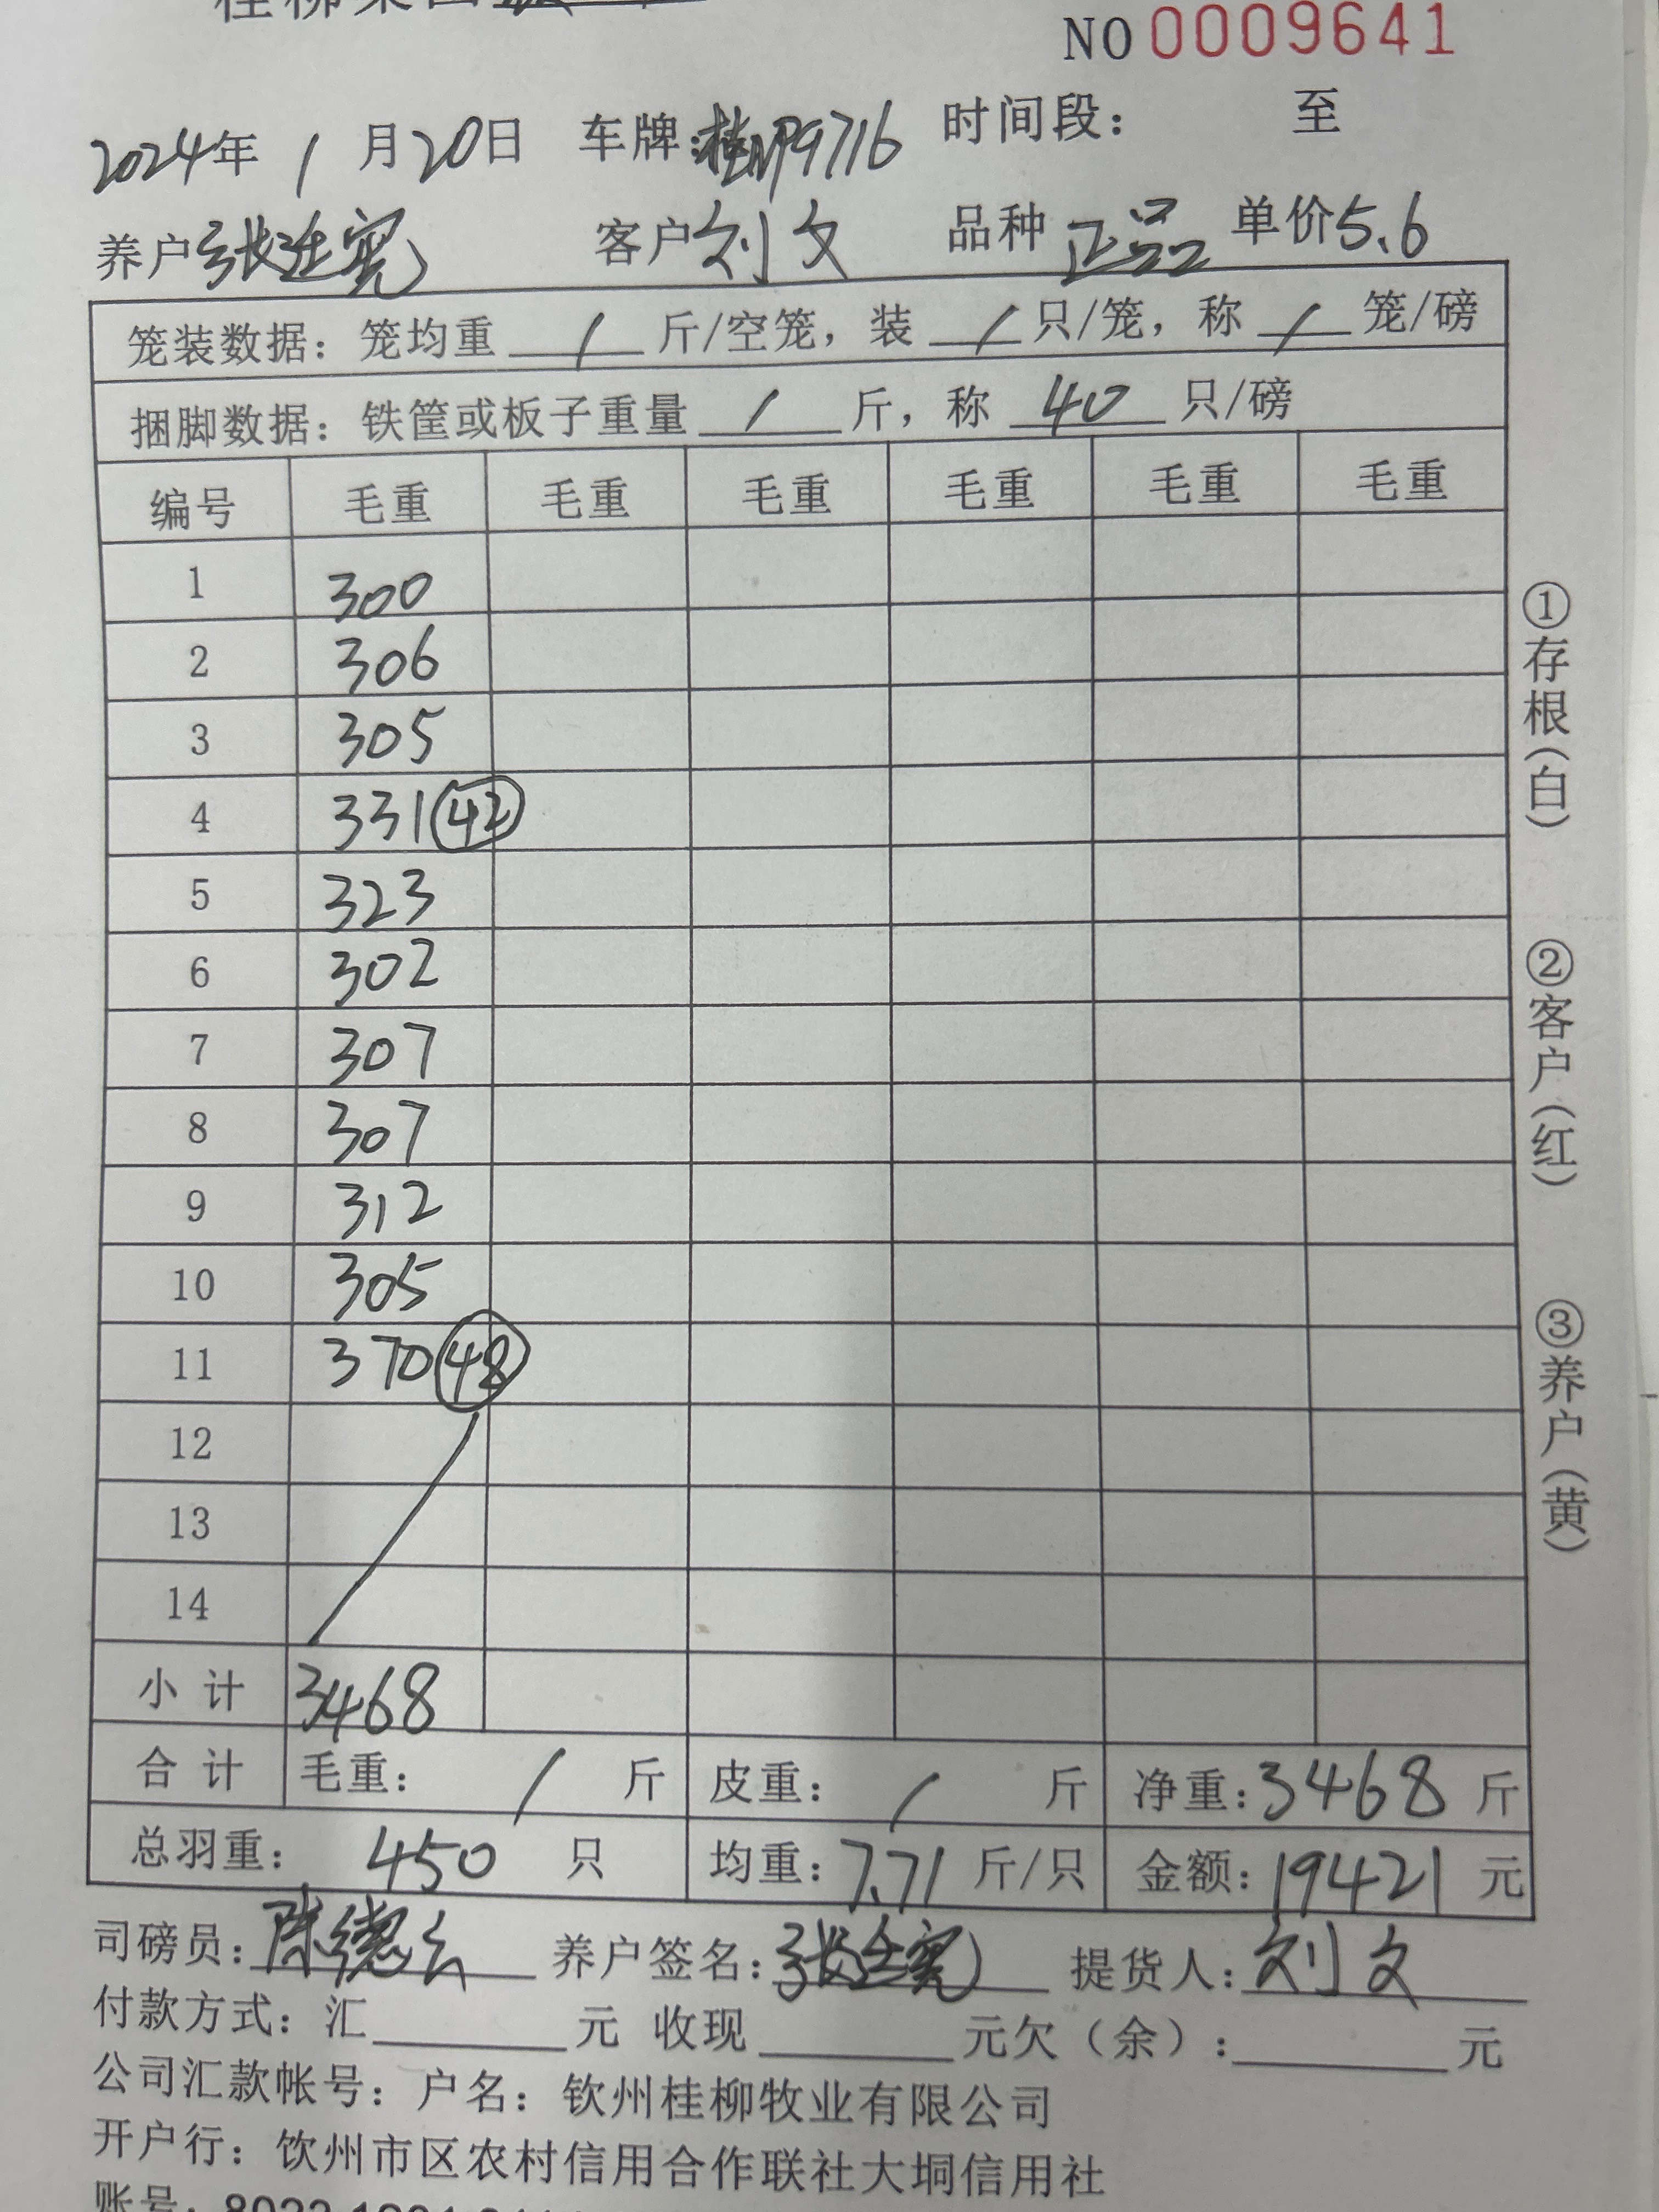 桂柳集团
NO 0009641
2024年 1 月 20 日 车牌:桂NP9716 时间段: 至
养户 客户 刘文 品种 正品 单价 5.6
笼装数据:笼均重 / 斤/空笼,装 / 只/笼,称 / 笼/磅
捆脚数据:铁筐或板子重量 / 斤,称 40 只/磅
编号 毛重 毛重 毛重 毛重 毛重 毛重
1 300
2 306
3 305
4 331 (42)
5 323
6 302
7 307
8 307
9 312
10 305
11 370 (48)
12
13
14
小计 3468
合计 毛重: / 斤 皮重: / 斤 净重:3468 斤
总羽重: 450 只 均重:7.71 斤/只 金额:19421 元
①存根(白)
②客户(红)
③养户(黄)
司磅员: 养户签名: 提货人:刘文
付款方式:汇 元 收现 元欠(余): 元
公司汇款帐号:户名:钦州桂柳牧业有限公司
开户行:钦州市区农村信用合作联社大垌信用社
账号: